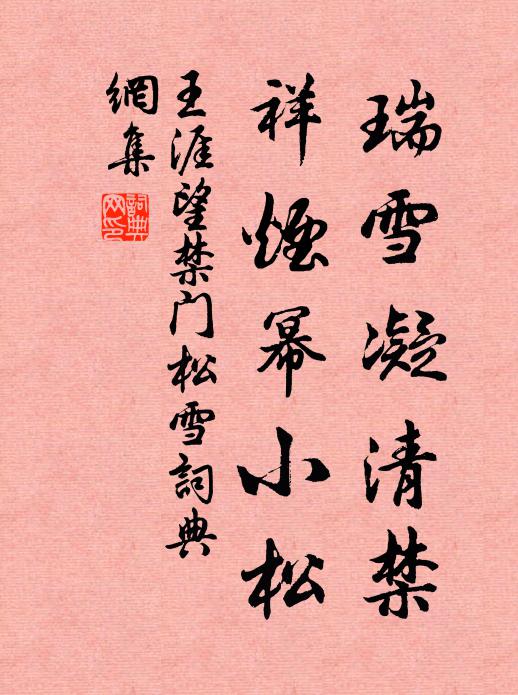 瑞雪凝清禁
祥煙冪小松
王涯望禁门松雪詞典
網集
詞典
网印